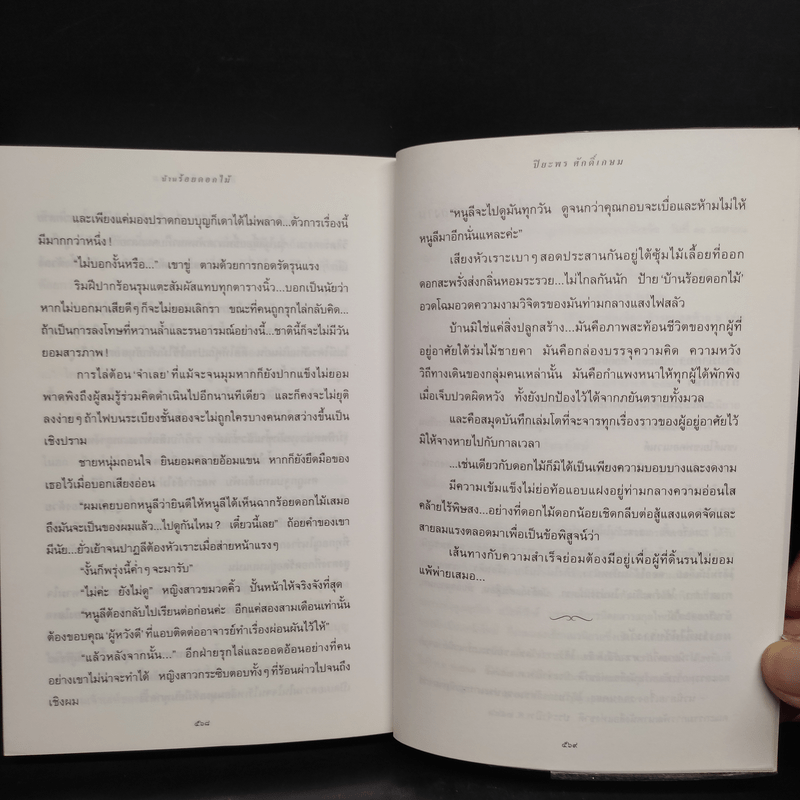 บ้านร้อยดอกไม้
และเพียงแค่มองปราดกอบบุญก็เดาได้ไม่พลาด...ตัวการเรื่องนี้
มีมากกว่าหนึ่ง!
“ไม่บอกงั้นหรือ...” เขาขู่ ตามด้วยการกอดรัดรุนแรง
ริมฝีปากร้อนรุมแตะสัมผัสแทบทุกตารางนิ้ว...บอกเป็นนัยว่า
หากไม่บอกมาเสียดีๆ ก็จะไม่ยอมเลิกรา ขณะที่คนถูกรุกไล่กลับคิด...
ถ้าเป็นการลงโทษที่หวานล้ำและรนอารมณ์อย่างนี้...ชาตินี้ก็จะไม่มีวัน
ยอมสารภาพ!
การไล่ต้อน ‘จำเลย’ ที่แม้จะจนมุมหากก็ยังปากแข็งไม่ยอม
พาดพิงถึงผู้สมรู้ร่วมคิดดำเนินไปอีกนานทีเดียว และก็คงจะไม่ยุติ
ลงง่ายๆ ถ้าไฟบนระเบียงชั้นสองจะไม่ถูกใครบางคนกดสว่างขึ้นเป็น
เชิงปราม
ชายหนุ่มถอนใจ ยินยอมคลายอ้อมแขน หากก็ยังยึดมือของ
เธอไว้เมื่อบอกเสียงอ่อน
“ผมเคยบอกหนูลีว่ายินดีให้หนูลีได้เห็นฉากร้อยดอกไม้เสมอ
ถึงมันจะเป็นของผมแล้ว...ไปดูกันไหม? เดี๋ยวนี้เลย” ถ้อยคำของเขา
มีนัย...ยั่วเย้าจนปาฏลีต้องหัวเราะเมื่อส่ายหน้าแรงๆ
“งั้นก็พรุ่งนี้ค่ำๆ จะมารับ”
“ไม่ค่ะ ยังไม่ดู” หญิงสาวขมวดคิ้ว ปั้นหน้าให้จริงจังที่สุด
“หนูลีต้องกลับไปเรียนต่อก่อนค่ะ อีกแค่สองสามเดือนเท่านั้น
ต้องขอบคุณ ‘ผู้หวังดี’ ที่แอบติดต่ออาจารย์ทำเรื่องผ่อนผันไว้ให้”
“แล้วหลังจากนั้น...” อีกฝ่ายรุกไล่และออดอ้อนอย่างที่คน
อย่างเขาไม่น่าจะทำได้ หญิงสาวกระซิบตอบทั้งๆ ที่ร้อนผ่าวไปจนถึง
เชิงผม
๕๖๘
ปิยะพร ศักดิ์เกษม
“หนูลีจะไปดูมันทุกวัน ดูจนกว่าคุณกอบจะเบื่อและห้ามไม่ให้
หนูลีมาอีกนั่นแหละค่ะ”
เสียงหัวเราะเบาๆ สอดประสานกันอยู่ใต้ซุ้มไม้เลื้อยที่ออก
ดอกสะพรั่งส่งกลิ่นหอมระรวย...ไม่ไกลกันนัก ป้าย ‘บ้านร้อยดอกไม้’
อวดโฉมอวดความงามวิจิตรของมันท่ามกลางแสงไฟสลัว
บ้านมิใช่แค่สิ่งปลูกสร้าง...มันคือภาพสะท้อนชีวิตของทุกผู้ที่
อยู่อาศัยใต้ร่มไม้ชายคา มันคือกล่องบรรจุความคิด ความหวัง
วิถีทางเดินของกลุ่มคนเหล่านั้น มันคือกำแพงหนาให้ทุกผู้ได้พักพิง
เมื่อเจ็บปวดผิดหวัง ทั้งยังปกป้องไว้ได้จากภยันตรายทั้งมวล
และคือสมุดบันทึกเล่มโตที่จะจารทุกเรื่องราวของผู้อยู่อาศัยไว้
มิให้จางหายไปกับกาลเวลา
...เช่นเดียวกับดอกไม้ก็มิได้เป็นเพียงความบอบบางและงดงาม
มีความเข้มแข็งไม่ย่อท้อแอบแฝงอยู่ท่ามกลางความอ่อนใส
คล้ายไร้พิษสง...อย่างที่ดอกไม้ดอกน้อยเชิดกลีบต่อสู้แสงแดดจัดและ
สายลมแรงตลอดมาเพื่อเป็นข้อพิสูจน์ว่า
เส้นทางกับความสำเร็จย่อมต้องมีอยู่เพื่อผู้ที่ดิ้นรนไม่ยอม
แพ้พ่ายเสมอ...
๕๖๙